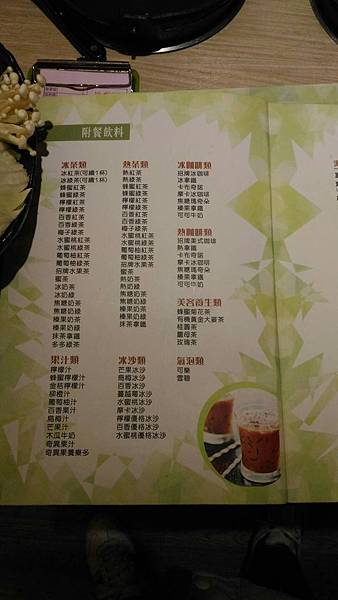 附餐飲料
冰茶類
冰紅茶(可續1杯)
冰綠茶(可續1杯)
蜂蜜紅茶
蜂蜜綠茶
檸檬紅茶
檸檬綠茶
百香紅茶
百香綠茶
梅子綠茶
水蜜桃紅茶
水蜜桃綠茶
葡萄柚紅茶
葡萄柚綠茶
招牌水果茶
蜜茶
冰奶茶
冰奶綠
焦糖奶茶
焦糖奶綠
榛果奶茶
榛果奶綠
抹茶拿鐵
多多綠茶
熱茶類
熱紅茶
熱綠茶
蜂蜜紅茶
蜂蜜綠茶
檸檬紅茶
檸檬綠茶
百香紅茶
百香綠茶
梅子綠茶
水蜜桃紅茶
水蜜桃綠茶
葡萄柚紅茶
葡萄柚綠茶
招牌水果茶
蜜茶
熱奶茶
熱奶綠
焦糖奶茶
焦糖奶綠
榛果奶茶
榛果奶綠
抹茶拿鐵
冰咖啡類
招牌冰咖啡
冰拿鐵
卡布奇諾
摩卡冰咖啡
焦糖瑪奇朵
榛果拿鐵
可可牛奶
熱咖啡類
招牌美式咖啡
熱拿鐵
卡布奇諾
摩卡冰咖啡
焦糖瑪奇朵
榛果拿鐵
可可牛奶
美容養生類
蜂蜜菊花茶
有機黃金大麥茶
桂圓茶
薑母茶
玫瑰茶
果汁類
檸檬汁
蜂蜜檸檬汁
金桔檸檬汁
柳橙汁
葡萄柚汁
百香果汁
烏梅汁
芒果汁
木瓜牛奶
奇異果汁
奇異果養樂多
冰沙類
芒果冰沙
烏梅冰沙
百香冰沙
蔓越莓冰沙
水蜜桃冰沙
摩卡冰沙
檸檬優格冰沙
百香優格冰沙
水蜜桃優格冰沙
氣泡類
可樂
雪碧